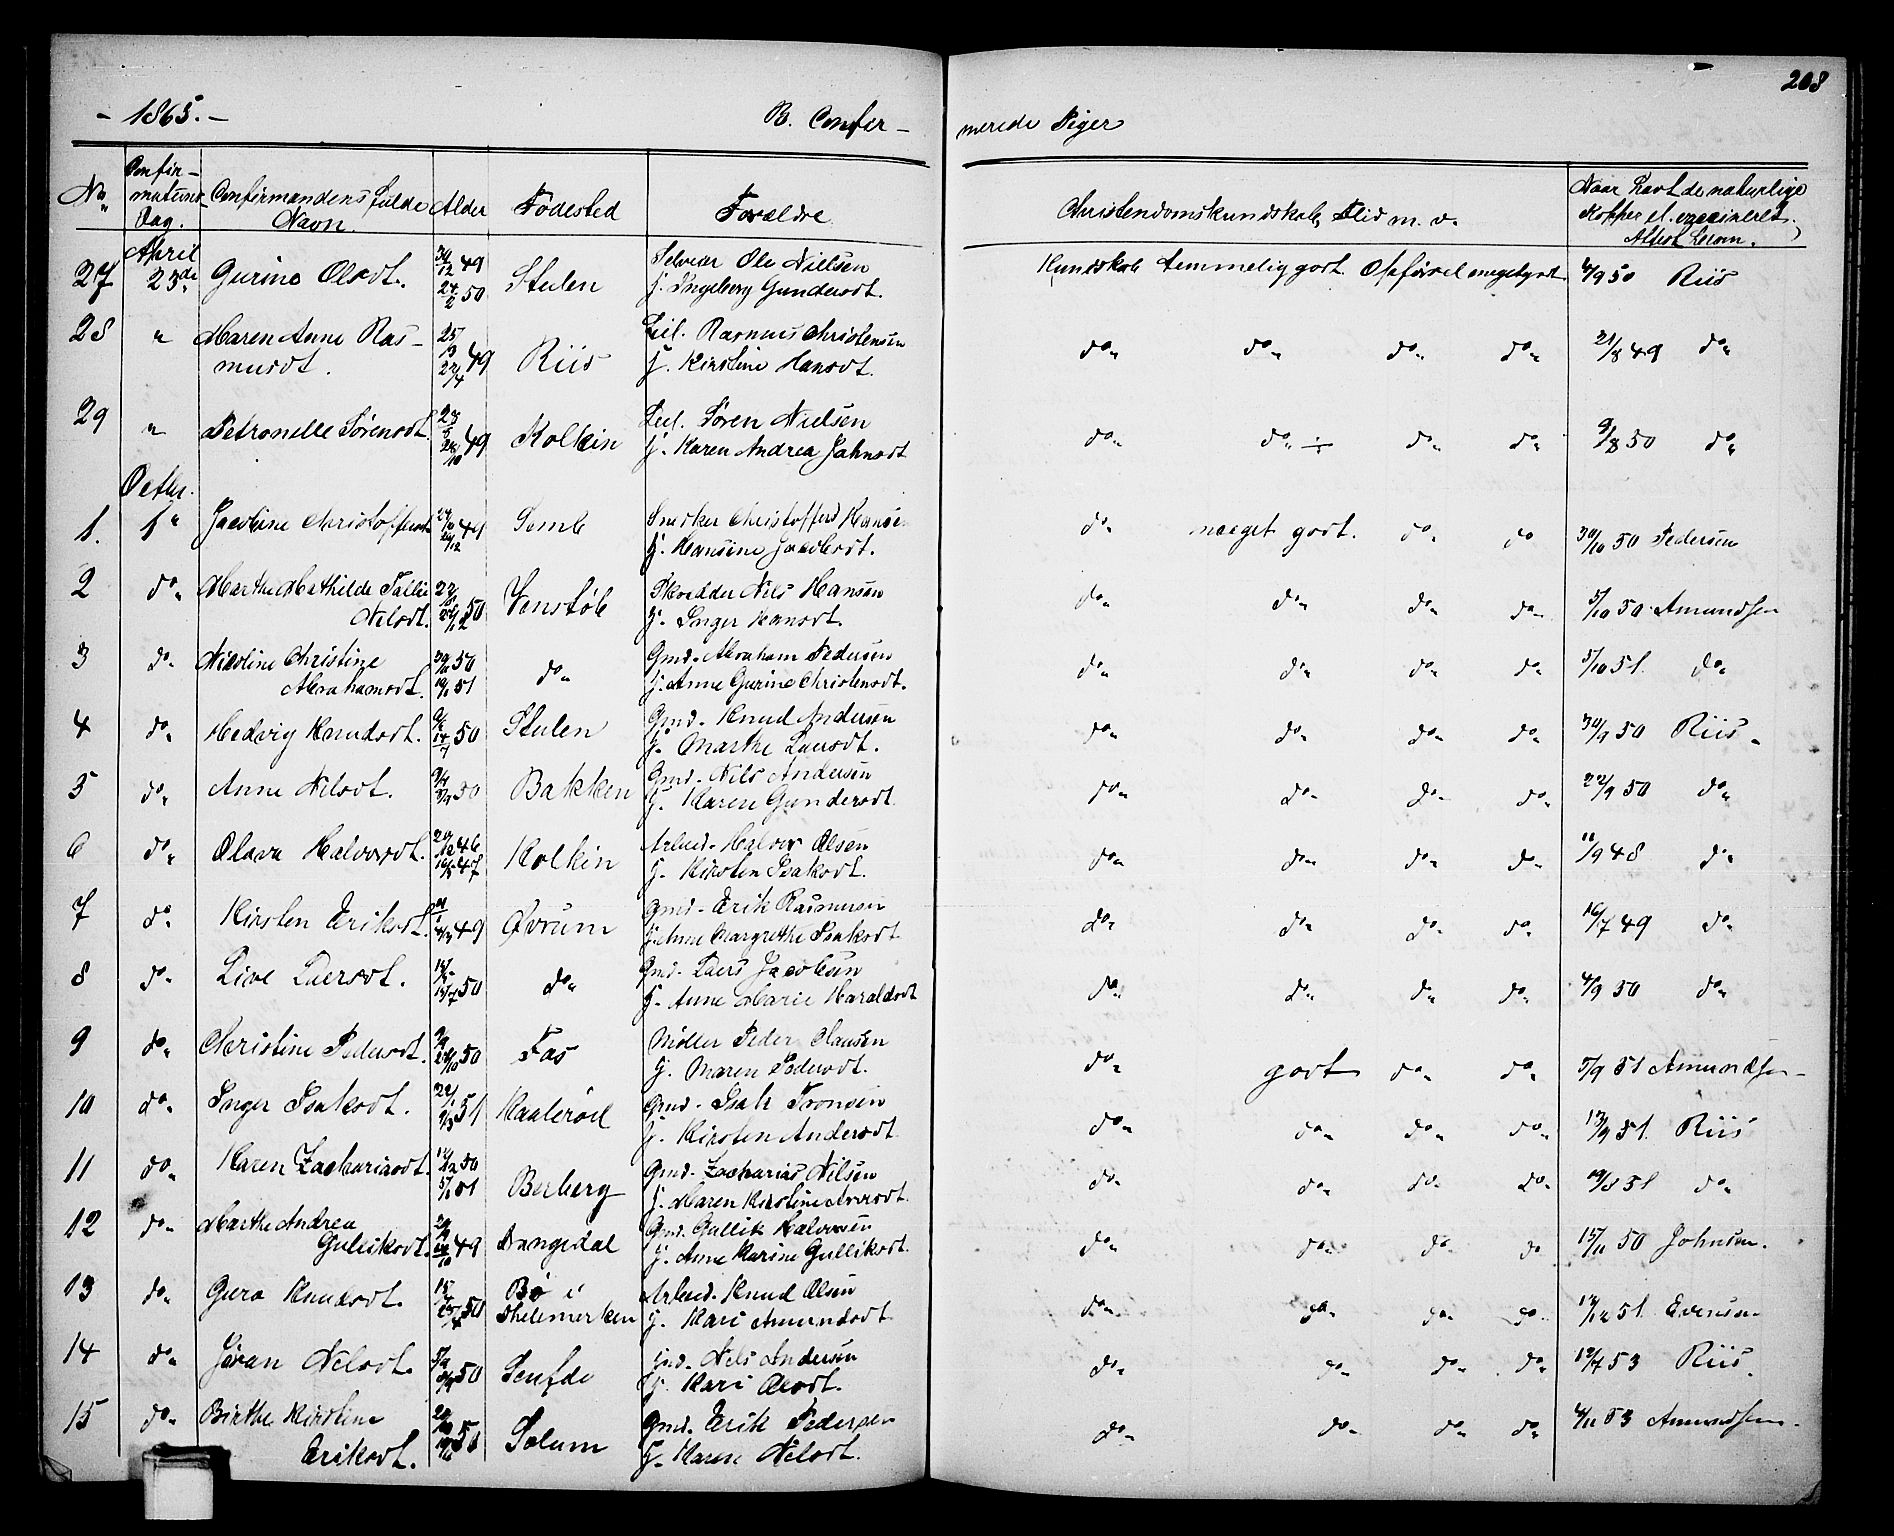 208
- 1865. -
B. Confir -
merede Piger
No
Confir-
mations
Dag.
Confirmandens fulde
Navn.
Alder
Fødested
Forældre.
Christendomskundskab, Flid m. v.
Naar havt de naturlige
Kopper el. vaccineret.
27 April 23de Gurine Olsdt. 49 50 Stulen Ole Nielsen
f. Ingeborg Gundersdt. Kundskab temmelig godt. Opførsel meget godt 50 Riis
28 " Maren Anne Ras-
musdt. 49 Riis Rasmus Christensen
f. Kirstine Hansdt. do do do do 21/8 49 do
29 " Petronelle Sørensdt. 49 Kolkin Søren Nielsen
f. Karen Andrea Jahnsdt do do do do 9/8 50 do
Octbr.
1. 1ste Jacobine Christoffersdt 49 Semb Snedker Christoffer Hanse
f. Hansine Jacobsdt. do meget godt. do do 30/10 50 Pedersen
2 do Marthe Mathilde Tallie
Nilsdt. 50 Venstøb Skrædder Nils Hansen
f. Inger Hansdt. do do do do 5/10 50 Amundsen
3 do Nicoline Christine
Abrahamsdt. 50 51 do Gmd. Abraham Pedersen
f. Anne Gurine Christensdt. do do do do 5/10 51. do
4 do Hedvig Knudsdt. 50 Stulen Gmd. Knud Andersen
f. Marthe Larsdt. do do do do 30/9 50 Riis
5 do Anne Nilsdt. 50 Bakken Gmd. Nils Andersen
f. Karen Gundersdt do do do do 22/9 50 do
6 do Olava Halvorsdt. 46 47 Kolkin Arbeid. Halvor Olsen
f. Kirsten Isaksdt. do do do do 11/9 48 do
7 do Kirsten Eriksdt. 49 Øvrum Gmd. Erik Rasmusen
f. Anne Margrethe Isaksdt do do do do 16/7 49 do
8 do Live Larsdt. 50 do Gmd. Lars Jacobsen
f. Anne Marie Haraldsdt do do do do 4/9 50 do
9 do Christine Pedersdt. 50 Fos Møller Peder Clausen
f. Maren Pedersdt. do godt do do 5/9 51 Amundsen
10 do Inger Isaksdt. 51 Kaalerød Gmd. Isak Tronsen
f. Kirsten Andersdt do do do do 13/9 51. Riis
11 do Karen Zachariasdt. 50 51 Berberg Gmd. Zacharias Nilsen
f. Maren Kirstine do do do do 51 do
12 do Marthe Andrea
Gulliksdt. 49 Drangedal Gmd. Gullik Halvorsen
f. Anne Karine Gulliksdt. do do do do 15/11 50 Johnsen.
13 do Guro Knudsdt. 50 Bø i
Thelemarken Arbeid. Knud Olsen
f. Kari Amundsdt do do do do 51. Evensen
14 do Jøran Nilsdt. 50 Gmd. Nils Andersen
f. Kari Olsdt. do do do do 53 Riis
15 do Birthe Kirstine
Eriksdt. 50 Solum Gmd. Erik Pedersen
f. Karen Nilsdt. do do do do 4/11 53 Amundsen